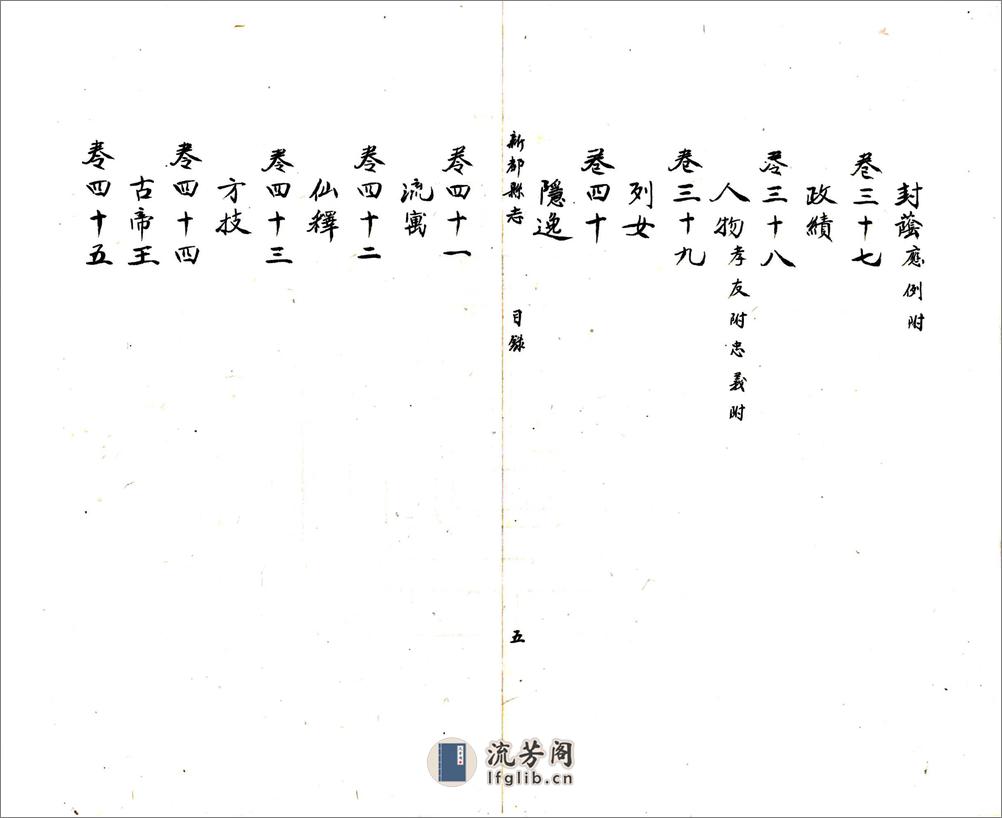 封蔭應例附
卷三十七
政績
卷三十八
人物孝友附忠義附
卷三十九
列女
卷四十
隱逸
新都縣志 目錄 五
卷四十一
流寓
卷四十二
仙釋
卷四十三
方技
卷四十四
古帝王
卷四十五
流芳阁
lfglib.cn